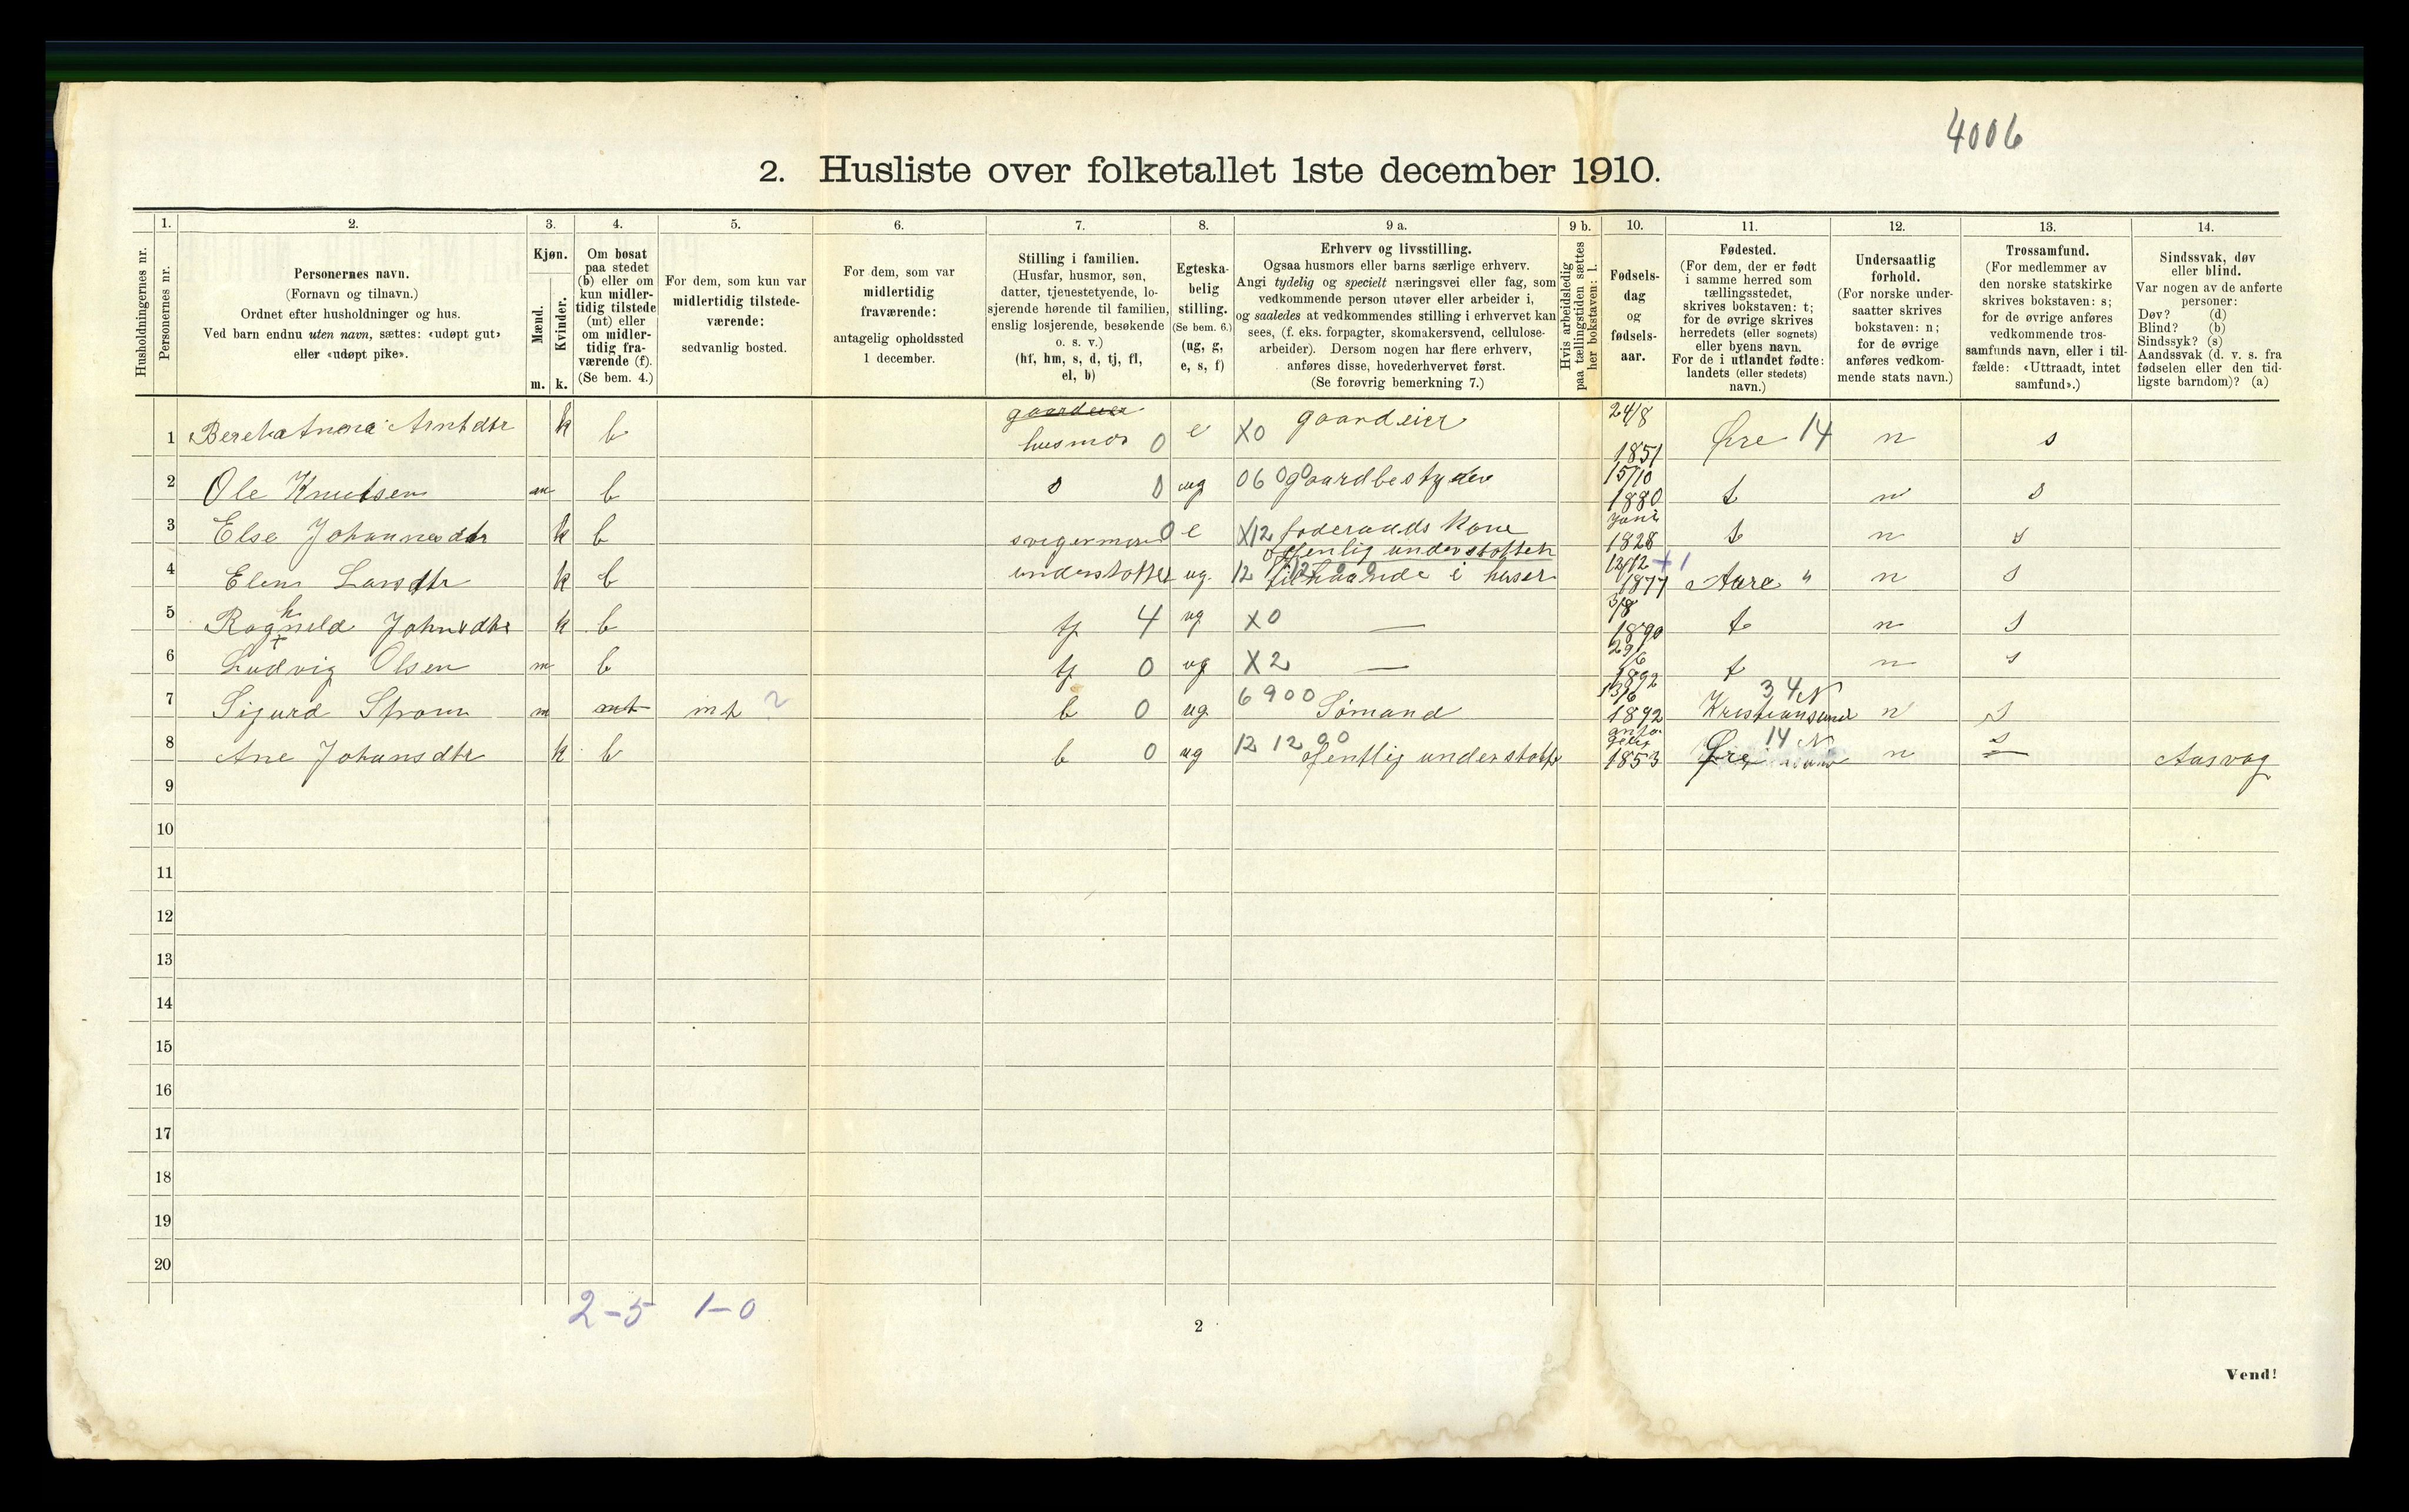 4006
2. Husliste over folketallet 1ste december 1910.
Husholdningernes nr.
1. Personernes nr.
2. Personernes navn.
(Fornavn og tilnavn.)
Ordnet efter husholdninger og hus.
Ved barn endnu uten navn, sættes: «udøpt gut»
eller «udøpt pike».
3. Kjøn.
Mænd. m.
Kvinder. k.
4. Om bosat
paa stedet
(b) eller om
kun midler-
tidig tilstede
(mt) eller
om midler-
tidig fra-
værende (f).
(Se bem. 4.)
5. For dem, som kun var
midlertidig tilstede-
værende:
sedvanlig bosted.
6. For dem, som var
midlertidig
fraværende:
antagelig opholdssted
1 december.
7. Stilling i familien.
(Husfar, husmor, søn,
datter, tjenestetyende, lo-
sjerende hørende til familien,
enslig losjerende, besøkende
o. s. v.)
(hf, hm, s, d, tj, fl,
el, b)
8. Egteska-
belig
stilling.
(Se bem. 6.)
(ug, g,
e, s, f)
9 a. Erhverv og livsstilling.
Ogsaa husmors eller barns særlige erhverv.
Angi tydelig og specielt næringsvei eller fag, som
vedkommende person utøver eller arbeider i,
og saaledes at vedkommendes stilling i erhvervet kan
sees, (f. eks. forpagter, skomakersvend, cellulose-
arbeider). Dersom nogen har flere erhverv,
anføres disse, hovederhvervet først.
(Se forøvrig bemerkning 7.)
9 b. Hvis arbeidsledig
paa tællingstiden sættes
her bokstaven: l.
10. Fødsels-
dag
og
fødsels-
aar.
11. Fødested.
(For dem, der er født
i samme herred som
tællingsstedet,
skrives bokstaven: t;
for de øvrige skrives
herredets (eller sognets)
eller byens navn.
For de i utlandet fødte:
landets (eller stedets)
navn.)
12. Undersaatlig
forhold.
(For norske under-
saatter skrives
bokstaven: n;
for de øvrige
anføres vedkom-
mende stats navn.)
13. Trossamfund.
(For medlemmer av
den norske statskirke
skrives bokstaven: s;
for de øvrige anføres
vedkommende tros-
samfunds navn, eller i til-
fælde: «Uttraadt, intet
samfund».)
14. Sindssvak, døv
eller blind.
Var nogen av de anførte
personer:
Døv? (d)
Blind? (b)
Sindssyk? (s)
Aandssvak (d. v. s. fra
fødselen eller den tid-
ligste barndom)? (a)
1 Arntdtr k b gaardeier husmor 0 e X0 gaardeier 24/8 1851 Øre 14 n s
2 Ole Knutsen m b s 0 ug 06 0 0 gaardbestyder 15/10 1880 t n s
3 Else Johannesdtr k b svigermor 0 e X12 foderaads Kone 1828 t n s
4 Elen Larsdtr k b understøttet ug 12 12 90 offenlig understøttet tilhaande i huset 12/12 1877 +1 Aure " n s
5 Ragnheld Johnsdtr k b tj 4 ug X0 — 3/8 1890 t n s
6 Ludvig Olsen m b tj 0 ug X2 — 29/6 1892 t n s
7 Sigurd Strøm m mt mt ? b 0 ug 6900 Sömand 13/6 1892 Kristiansund 34 N n s
8 Ane Johansdtr k b b 0 ug 12 12 90 ofentlig understøtt 1853 Øre 14 N n s Aasvag
9
10
11
12
13
14
15
16
17
18
19
20
2-5 1-0
2
Vend!